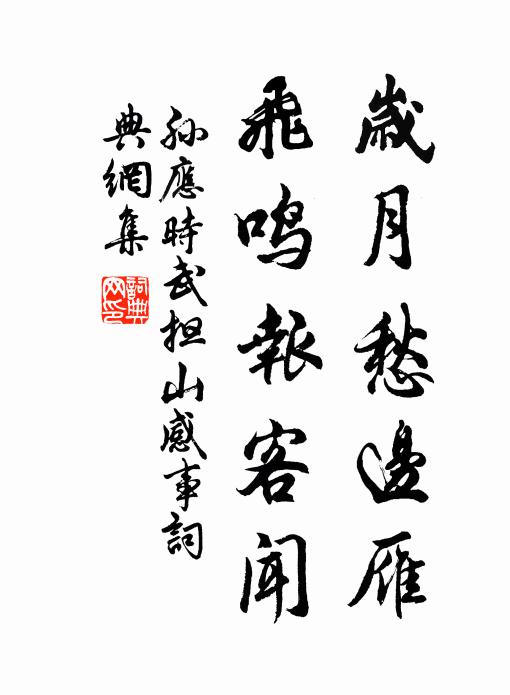 歲月愁邊雁
飛鳴報客聞
孙應時武担山感事詞
典網集
詞典網印